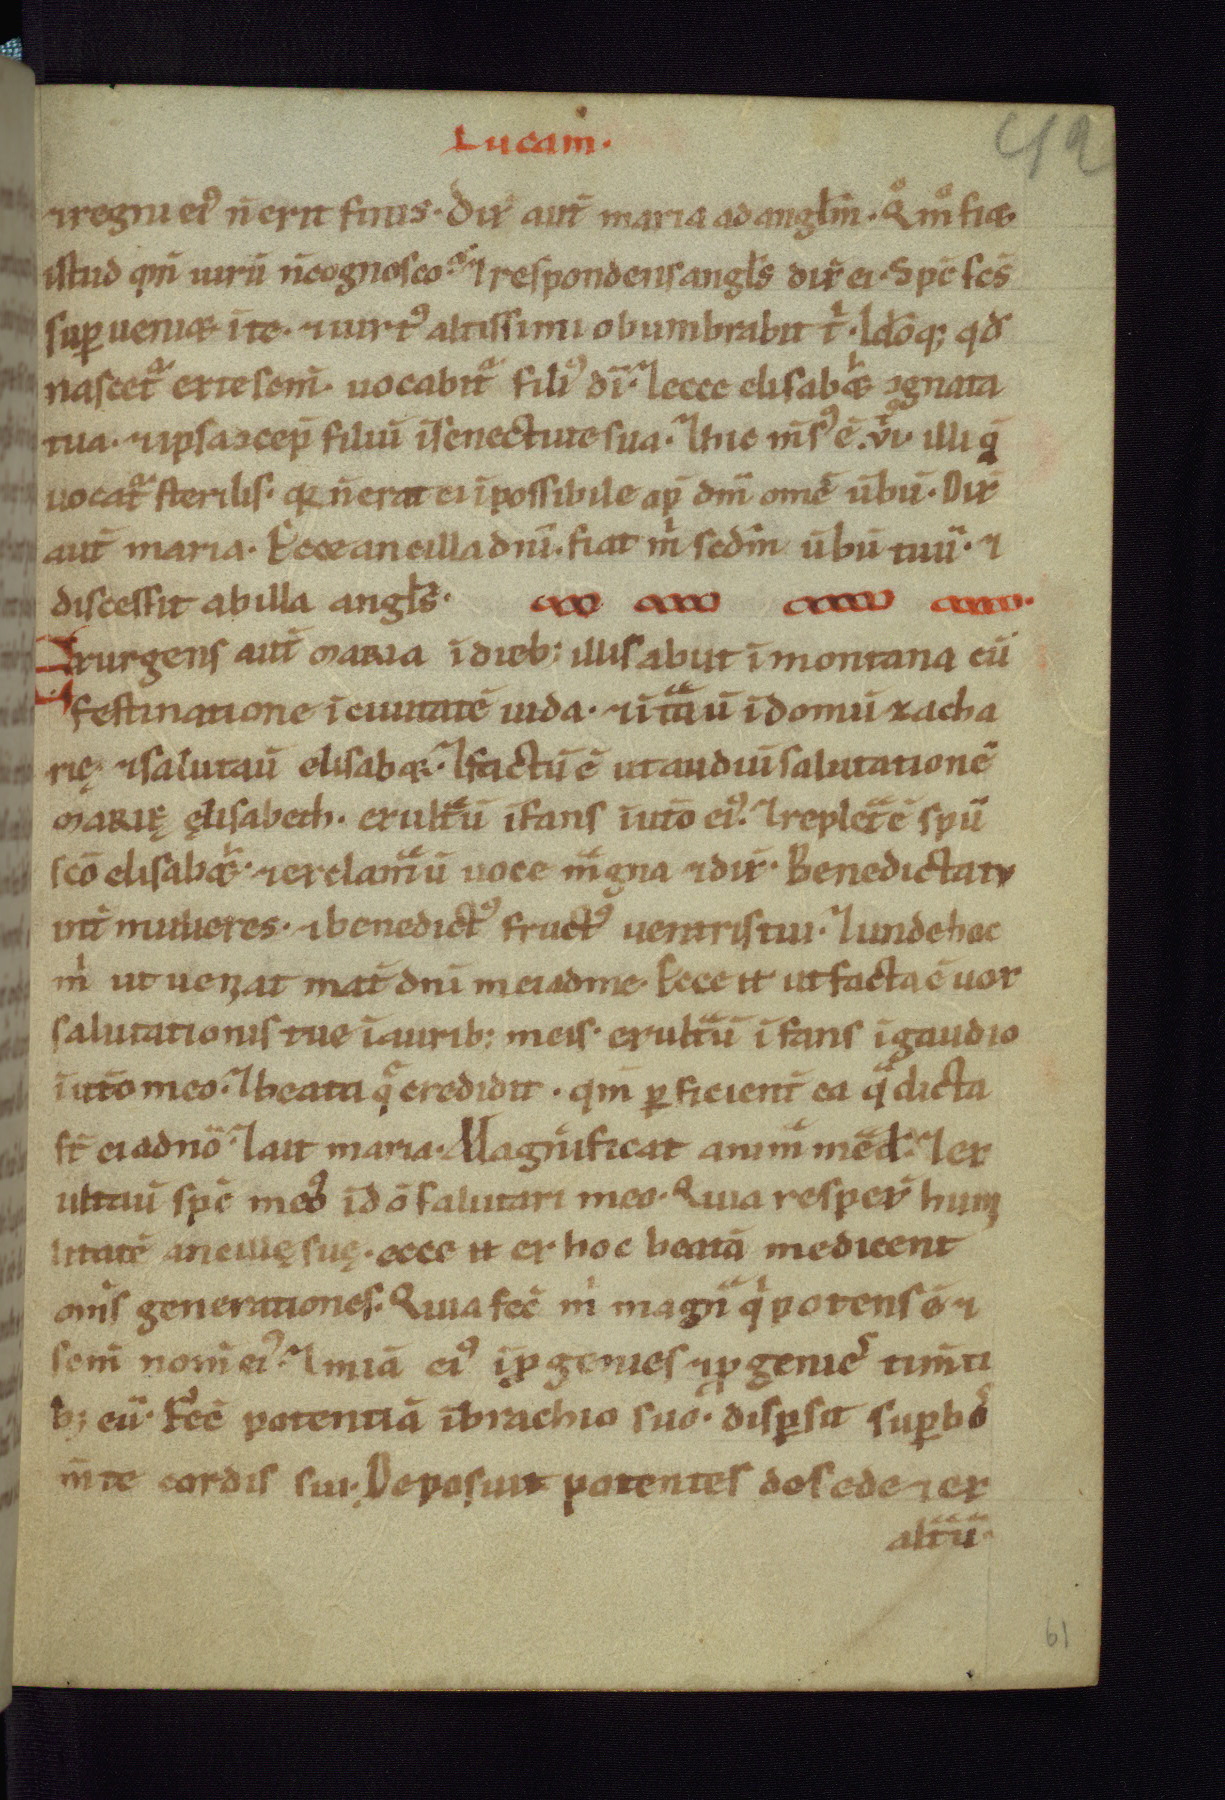 Lucam.
42
⁊ regni ei⁹ n̄ erit finis. Dix̄ aut̄ maria ad anglm̄. Qͦm̊ fiet
istud qm̄ uirū n̄ cognosco. ⁊ respondens angls̄ dix̄ ei. Spc̄ scs̄
suꝑueniet īte. ⁊ uirt⁹ altissimi obumbrabit t̄. Idōq; qd̄
nascet᷑ ex te scm̄. uocabit᷑ fili⁹ dī. ⁊ ecce elisabeth ↄgnata
tua. ⁊ ipsa ↄcep̄ filiū īsenectute sua. ⁊ hic m̄s⁹ ē .vi. illi q̄
uocat᷑ sterilis. q̄ n̄ erat ei īpossibile ap̄ dm̄ omē ūbū. Dix̄
aut̄ maria. Ecce ancilla dn̄i. fiat m̄ scdm̄ ūbū tuū. ⁊
discessit ab illa angls̄.
Exurgens aut̄ maria ī dieb; illis abiit ī montana cū
festinatione ī ciuitatē iuda. ⁊ ītᵃuū ī domū zacha
rię. ⁊ salutaū elisabet. ⁊ factū ē ut audiuī salutationē
marię elisabeth. exultᵃū īfans ī utō ei⁹. ⁊ replet̄ ē spū
scō elisabeth. ⁊ exclamᵃū uoce mᵃgna ⁊ dix̄. Benedicta tu
int̄ mulieres. ⁊ benedict⁹ fruct⁹ uentris tui. ⁊ unde hoc
m̄ ut ueniat mat̄ dn̄i mei ad me. Ecce ī ut facta ē uox
salutationis tue ī aurib; meis. exultᵃū īfans ī gaudio
ī utō meo. ⁊ beata q̄ credidit. qm̄ ꝑficient̄ ea q̄ dicta
st̄ ei a dn̄o. ⁊ ait maria. Magnificat animᵃ mea d. ⁊ ex
ultaū spc̄ me⁹ ī dō salutari meo. Quia respex̄ humi
litatē ancillę suę. ecce ī ex hoc beatā me dicent
oms̄ generationes. Quia fec̄ m̄ magnᵃ q̄ potens ē. ⁊
scm̄ nom̄ ei⁹. ⁊ mīa ei⁹ ī ꝓgenies ⁊ ꝓgenies timti
b; eū. Fec̄ potentiā ī brachio suo. disꝑsit suꝑbos
m̄te cordis sui. Deposuit potentes de sede ⁊ ex
altᵃū.
61